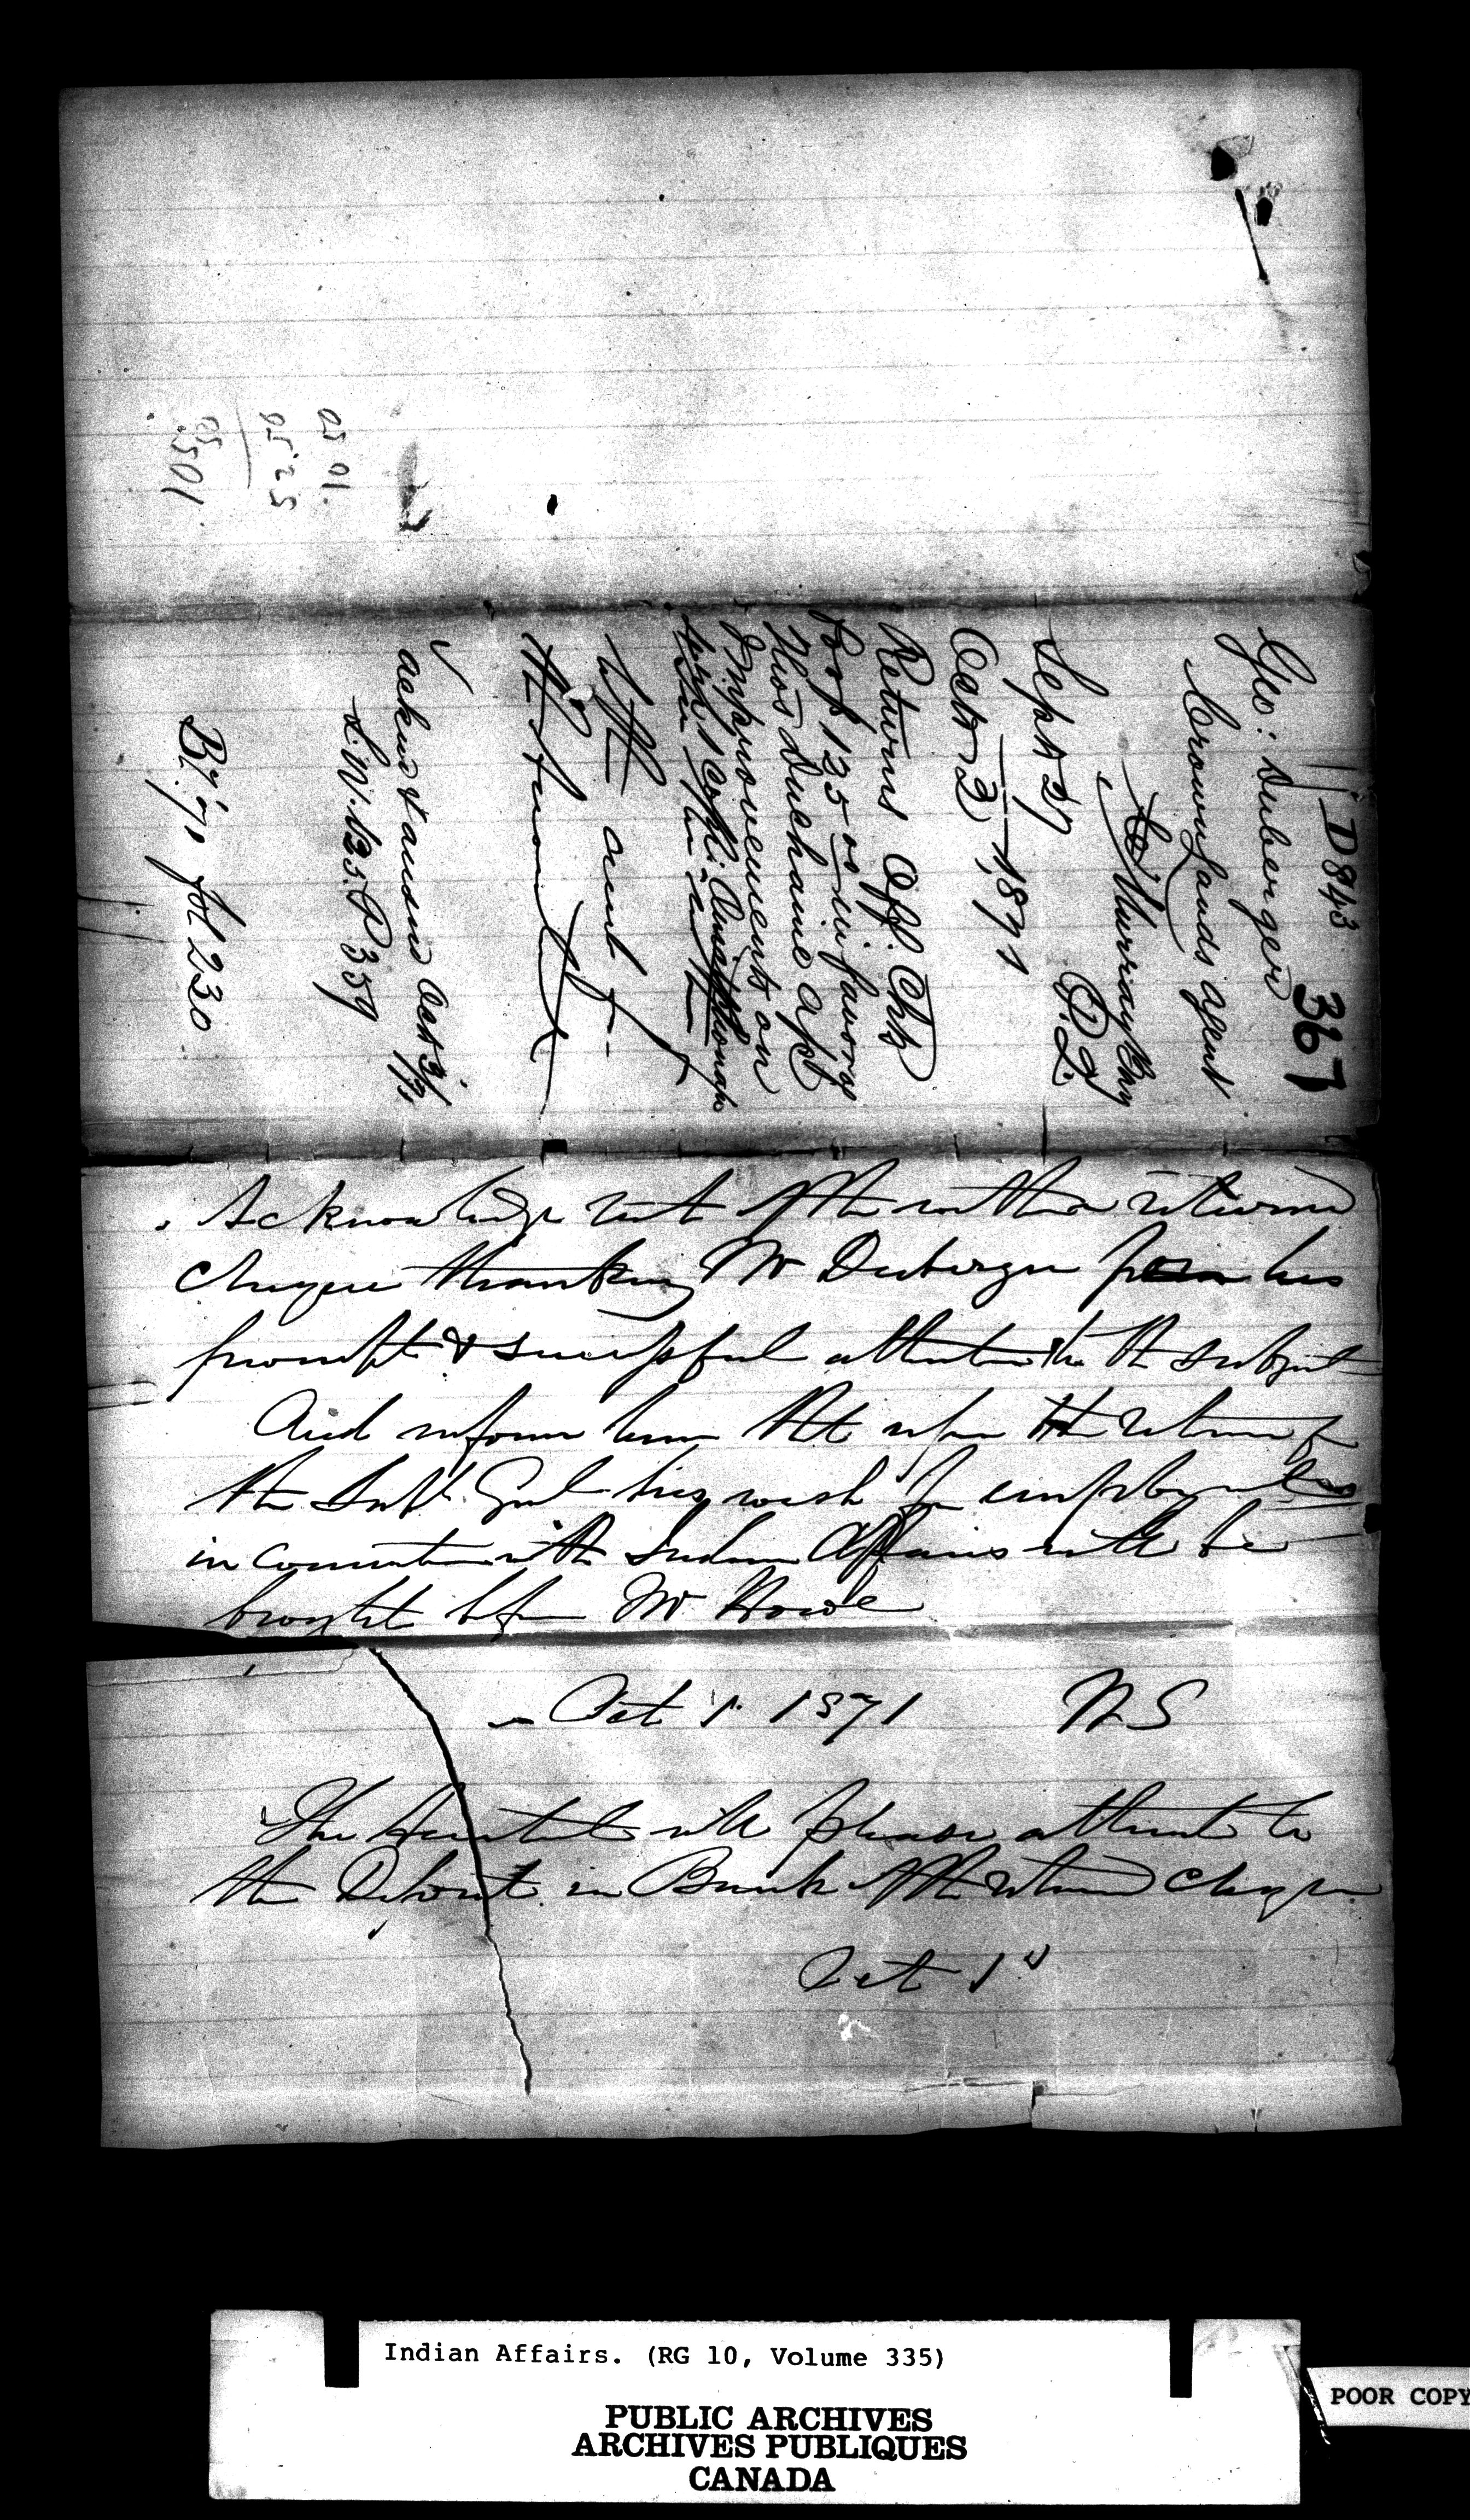 D843
367
Geo: Duberger
Crown Lands Agent
Murray Bay
P.Q.
Sept 27
Oct 2 1871
Returns Off. Chk
for $125 00 in favor of
Thos Duchaine a/c of
Improvements on
ackn'd & ansd Oct 3/71
L.N. 125. P 359
Bk 70 fol 230
10 50
95.25
105.50
Acknowledge rect of the within returned
cheque thanking Mr Duberger for his
prompt & successful attention to the subject
And inform him tht upon the return of
the Supt Genl his wish for employment
in connection with Indian Affairs will be
brought before Mr Howe
Oct 1. 1871 WS
The Accountant will please attend to
the Deposit in Bank of the returned cheque
Oct 1st
Indian Affairs. (RG 10, Volume 335)
PUBLIC ARCHIVES
ARCHIVES PUBLIQUES
CANADA
POOR COPY